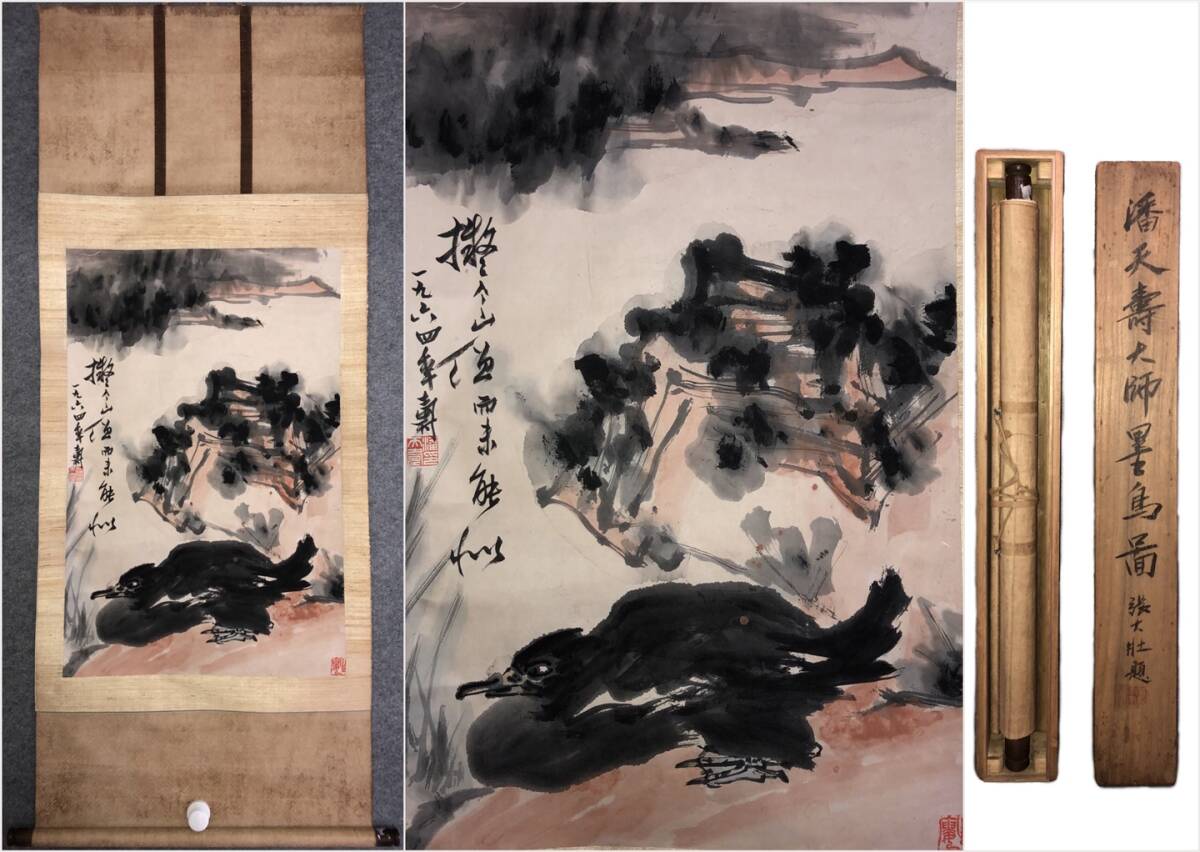 擬个山而未能似
一九六四年壽
擬个山而未能似
一九六四年壽
潘天壽大師墨鳥圖
張大壯題